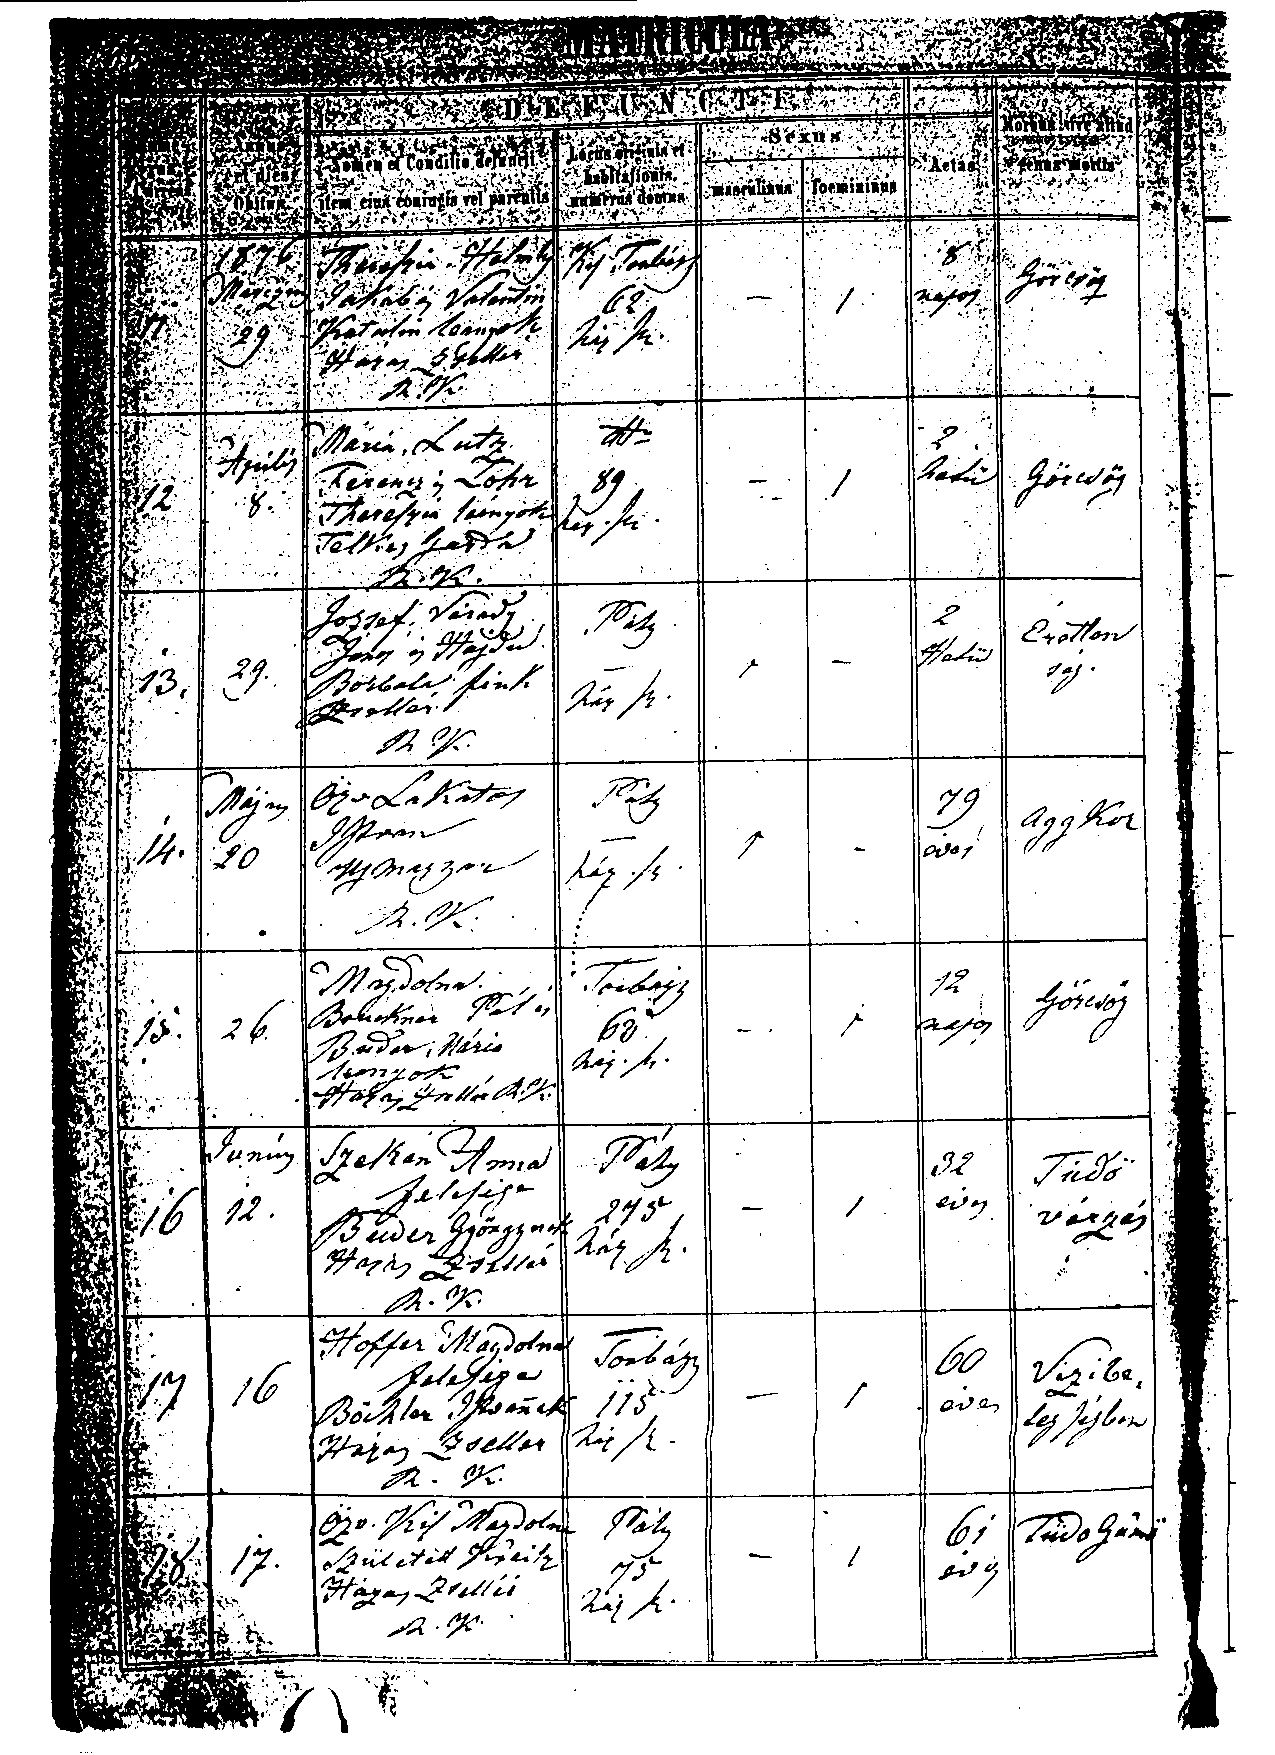 MATRICULA
DEFUNCTI
Annus et dies Obitus
Nomen et Conditio defuncti item ejus conjugis vel parentis
Locus originis et habitationis, numerus domus
Sexus
masculinus
foemininus
Aetas
Morbus sive aliud genus mortis
1876
Márczius
29
Jakab és Valentin
Katalin leányok
Házas Zsellér
R. K.
62
ház sz.
—
1
8
napos
Görcsög
12
Április
8.
Mária, Lutz
Ferencz és Lohr
Thereszia leányok
Telkes Gazda
R. K.
89
ház sz.
—
1
2
hetü
Görcsög
13.
29.
József. Várady
János és Hajdu
Borbála fiuk
Zsellér
R. K.
Páty
—
ház sz.
1
—
2
Hetü
Erőtlen
ség.
14.
Május
20
Özv Lakatos
István
R. K.
Páty
—
ház sz.
1
-
79
éves
Agg Kor
15.
26.
Magdolna.
Bruckner Pál és
Buder, Mária
leányok
Házas Zsellér R. K.
Torbágy
68
ház. sz.
-
1
12
napos
Görcsög
16
Június
12.
Szekán Anna
felesége
Buder Györgynek
Házas Zsellér
R. K.
Páty
275
ház sz.
—
1
32
éves
Tüdő
vérzés
17
16
Hoffer Magdolna
felesége
Böchler Istvánnak
Házas Zsellér
R. K.
Torbágy
115
ház sz.
—
1
60
éves
Vizibe,
tegségben
18
17.
Özv. Kis Magdolna
Született
Házas Zsellér
R. K.
Páty
75
ház sz.
—
1
61
évü
Tüdo Gümő